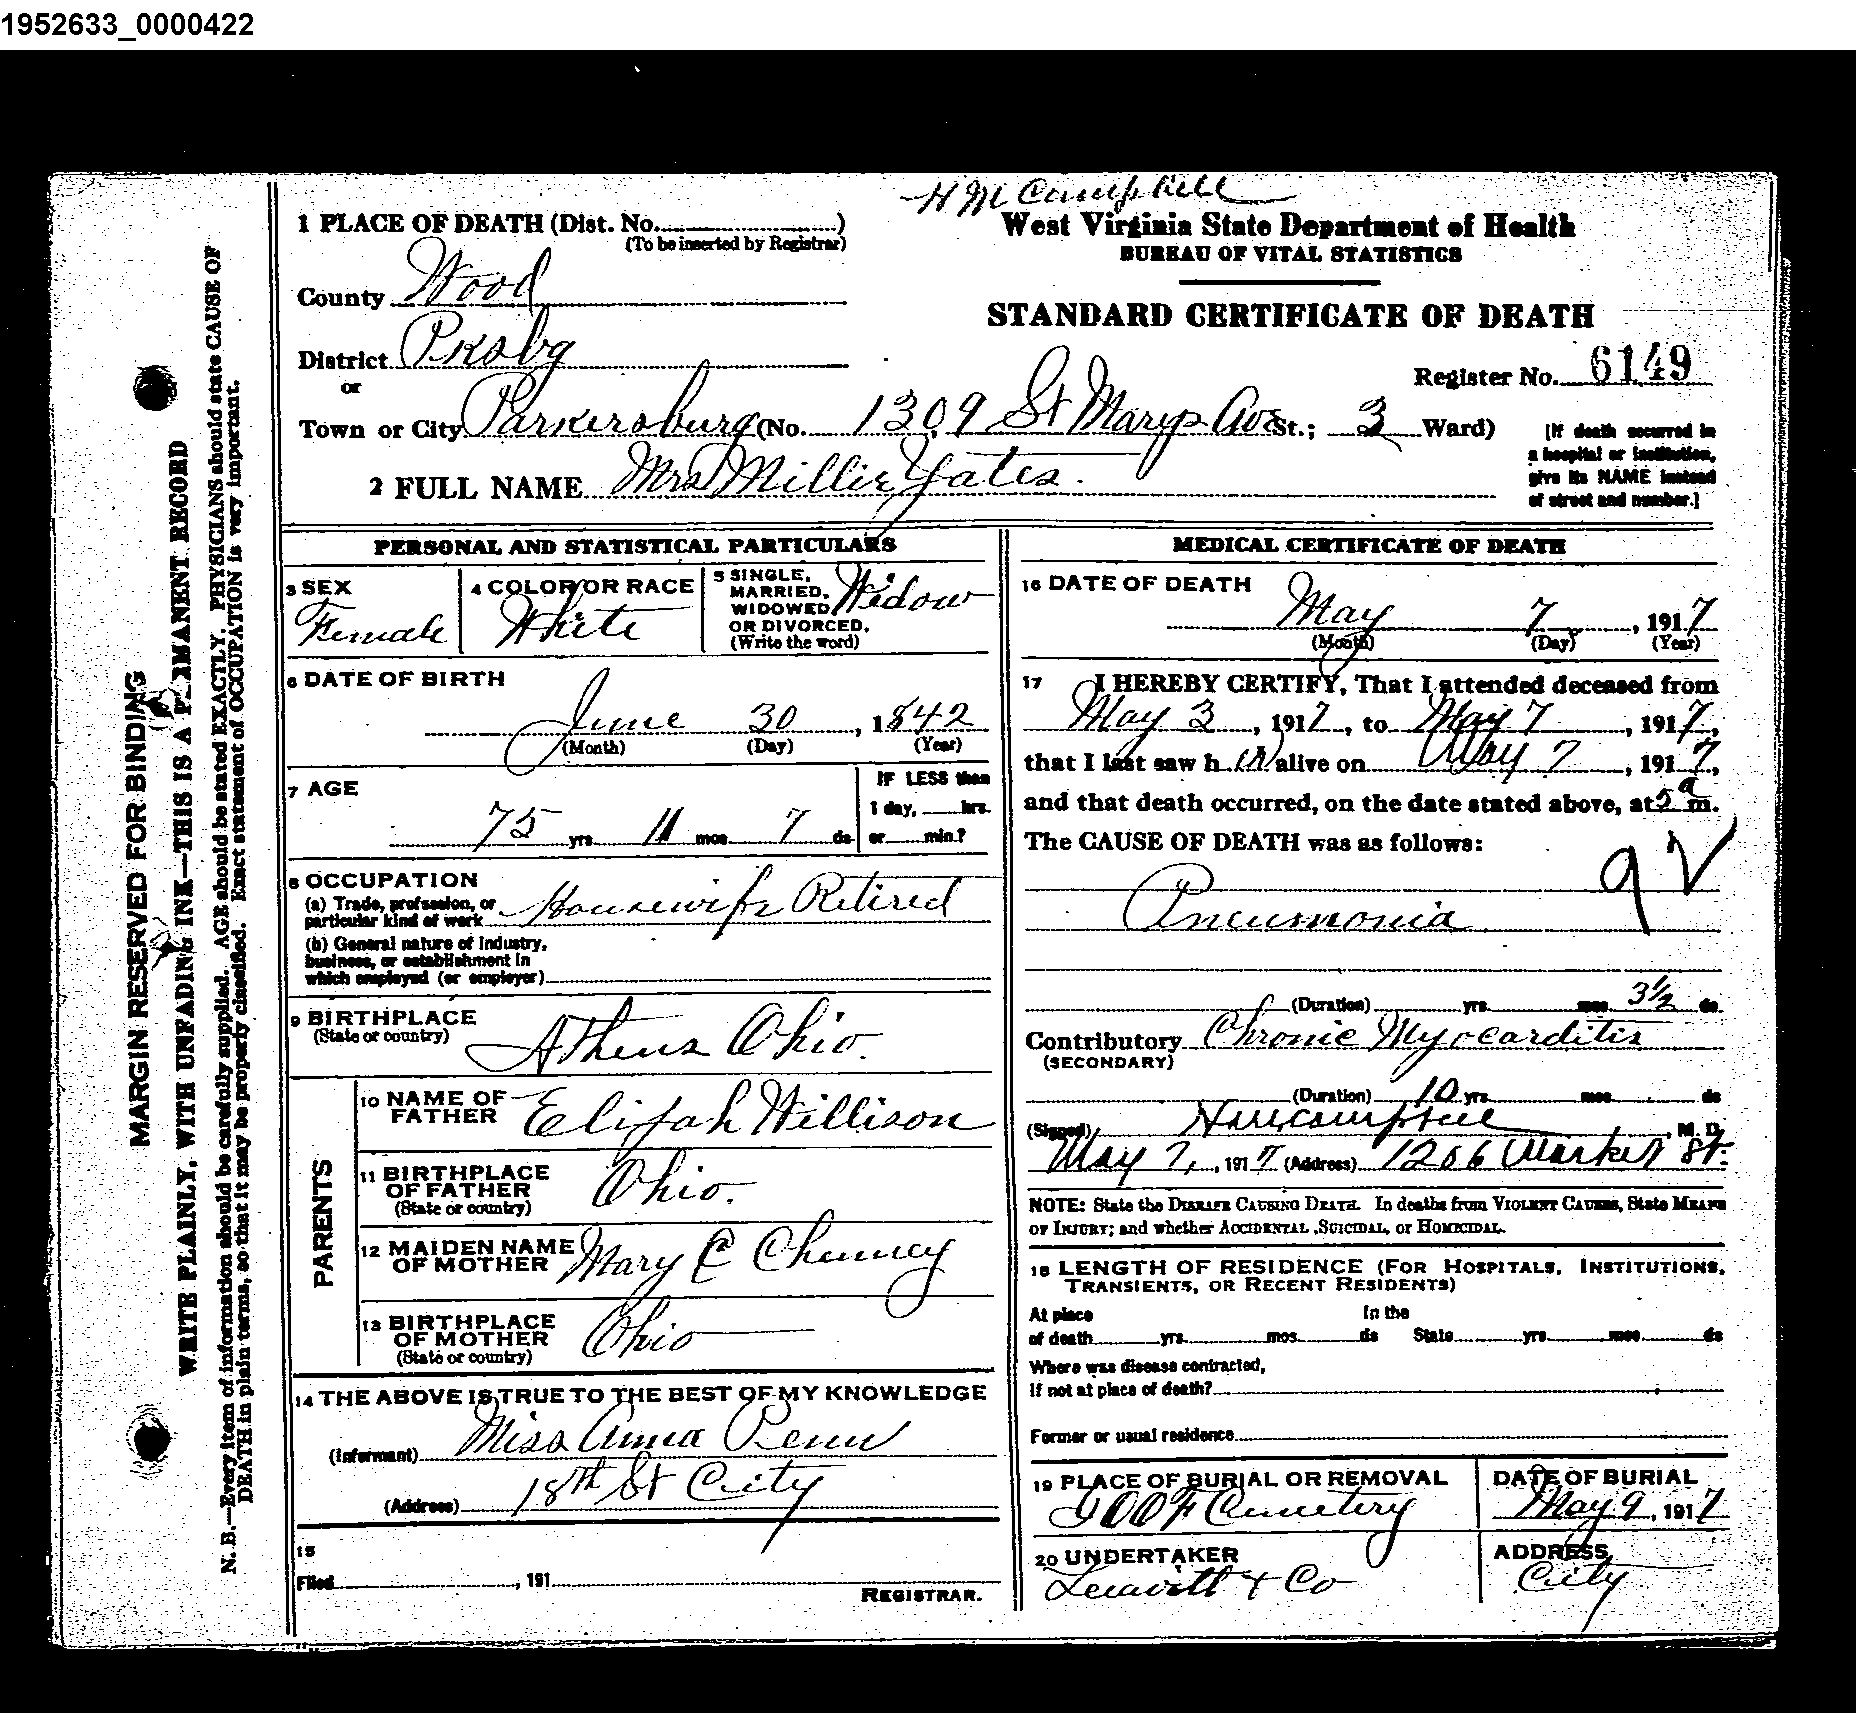 1952633_0000422
H M Campbell
1 PLACE OF DEATH (Dist. No. )
(To be inserted by Registrar)
County Wood
District Pksbg
or
Town or City Parkersburg (No. 1309 St Marys Ave St.; 3 Ward)
2 FULL NAME Mrs Millie Yates.
West Virginia State Department of Health
BUREAU OF VITAL STATISTICS
STANDARD CERTIFICATE OF DEATH
Register No. 6149
[If death occurred in
a hospital or institution,
give its NAME instead
of street and number.]
MARGIN RESERVED FOR BINDING
WRITE PLAINLY, WITH UNFADING INK—THIS IS A PERMANENT RECORD
N. B.—Every item of information should be carefully supplied. AGE should be stated EXACTLY. PHYSICIANS should state CAUSE OF
DEATH in plain terms, so that it may be properly classified. Exact statement of OCCUPATION is very important.
PERSONAL AND STATISTICAL PARTICULARS
3 SEX
Female
4 COLOR OR RACE
White
5 SINGLE,
MARRIED,
WIDOWED
OR DIVORCED,
(Write the word)
Widow
6 DATE OF BIRTH
June 30, 1842
(Month) (Day) (Year)
7 AGE
75 yrs 11 mos 7 ds
IF LESS than
1 day, hrs.
or min.?
8 OCCUPATION
(a) Trade, profession, or
particular kind of work Housewife Retired
(b) General nature of Industry,
business, or establishment in
which employed (or employer)
9 BIRTHPLACE
(State or country) Athens Ohio.
PARENTS
10 NAME OF
FATHER Elijah Willison
11 BIRTHPLACE
OF FATHER
(State or country) Ohio.
12 MAIDEN NAME
OF MOTHER Mary C
13 BIRTHPLACE
OF MOTHER
(State or country) Ohio
14 THE ABOVE IS TRUE TO THE BEST OF MY KNOWLEDGE
(Informant) Miss Anna Penn
(Address) 18th St City
15
Filed , 191
REGISTRAR.
MEDICAL CERTIFICATE OF DEATH
16 DATE OF DEATH
May 7, 1917
(Month) (Day) (Year)
17 I HEREBY CERTIFY, That I attended deceased from
May 3, 1917, to May 7, 1917,
that I last saw h er alive on May 7, 1917,
and that death occurred, on the date stated above, at 5 a m.
The CAUSE OF DEATH was as follows:
92
Pneumonia
(Duration) yrs mos 3½ ds
Contributory Chronic Myocarditis
(SECONDARY)
(Duration) 10 yrs mos ds
(Signed) H M Campbell, M. D.
May 7, 1917 (Address) 1206 Market St.
NOTE: State the DISEASE CAUSING DEATH. In deaths from VIOLENT CAUSES, State MEANS
OF INJURY; and whether ACCIDENTAL ,SUICIDAL, or HOMICIDAL.
18 LENGTH OF RESIDENCE (FOR HOSPITALS, INSTITUTIONS,
TRANSIENTS, OR RECENT RESIDENTS)
At place In the
of death yrs mos ds State yrs mos ds
Where was disease contracted,
If not at place of death?
Former or usual residence
19 PLACE OF BURIAL OR REMOVAL
IOOF Cemetery
DATE OF BURIAL
May 9, 1917
20 UNDERTAKER
Leavitt & Co
ADDRESS
City